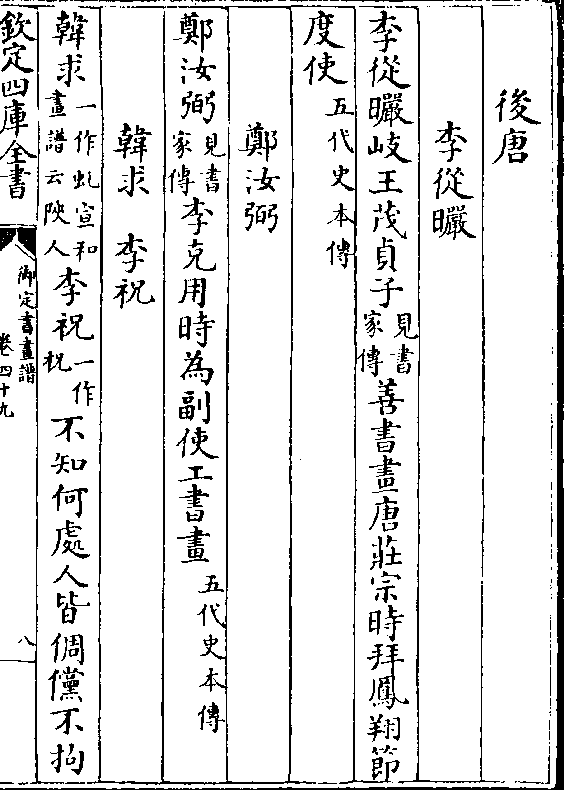 後唐
李從曮
李從曮岐王茂貞子見書家傳善書畫唐莊宗時拜鳳翔節
度使五代史本傳
鄭汝弼
鄭汝弼見書家傳李克用時為副使工書畫五代史本傳
韓求 李祝
韓求一作虬宣和畫譜云陝人李祝一作柷不知何處人皆倜儻不拘
欽定四庫全書
御定書畫譜
卷四十九
八